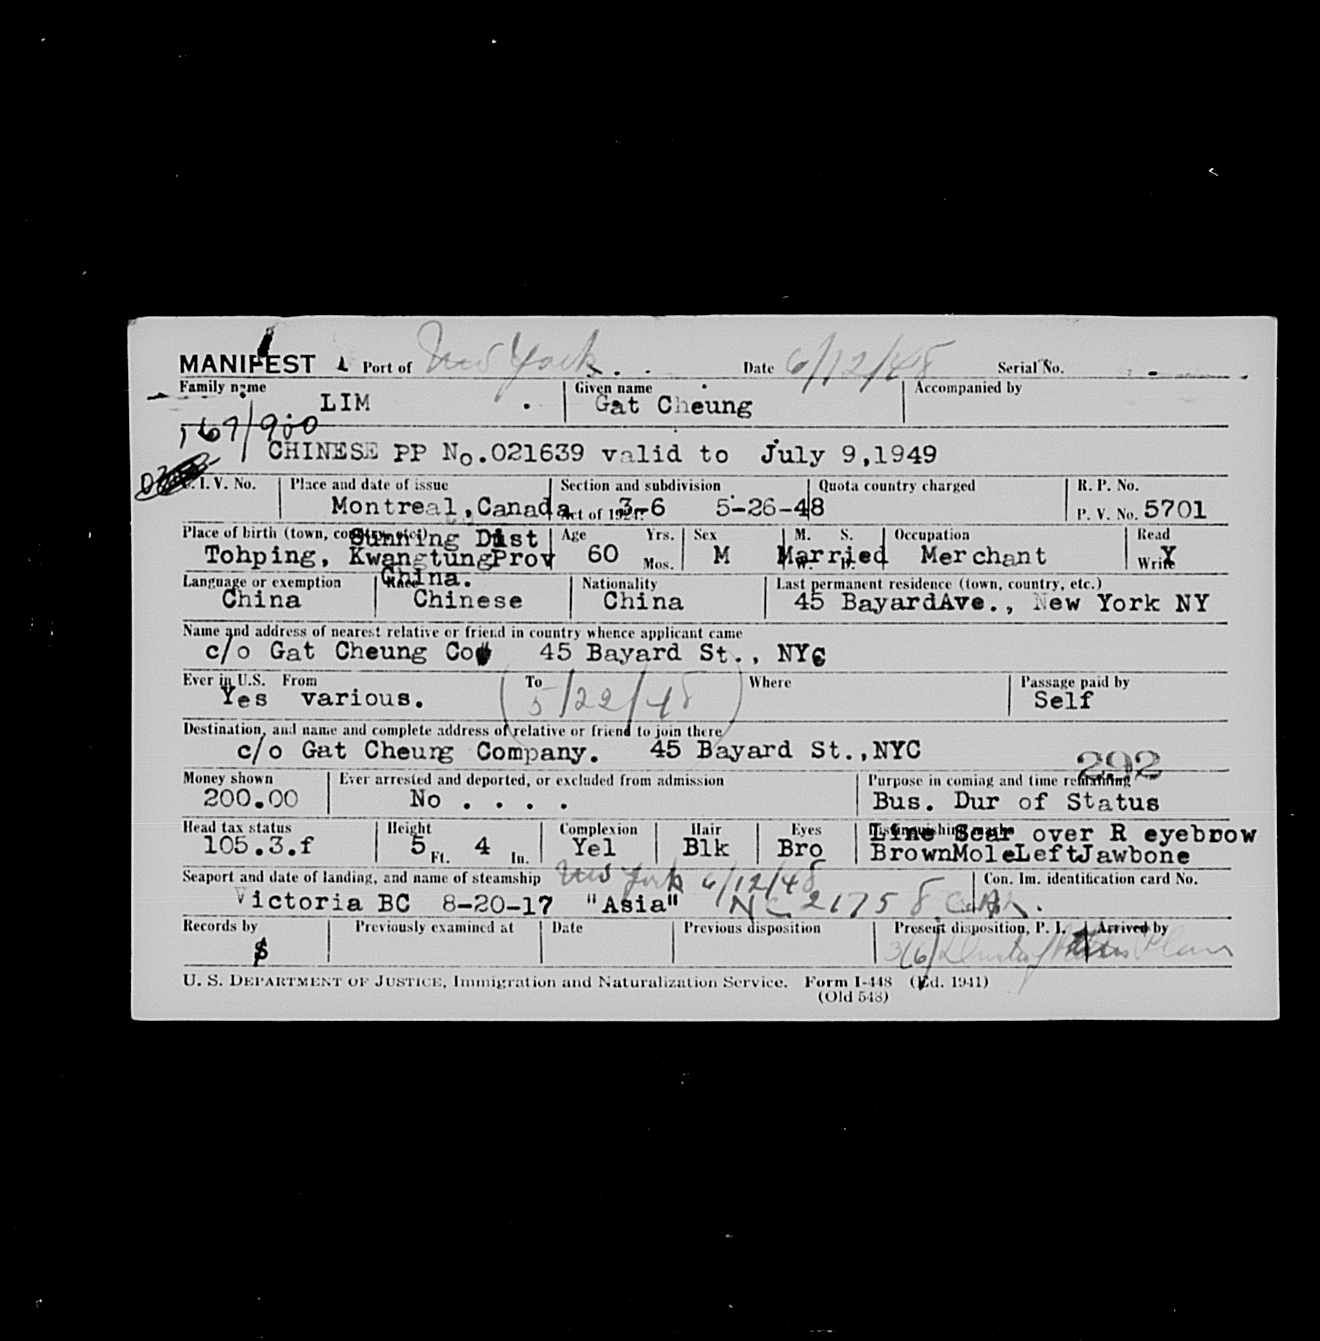 MANIFEST 1 Port of New York. Date 6/12/48 Serial No.
Family name Given name Accompanied by
LIM Gat Cheung
567/900
CHINESE PP No.021639 valid to July 9,1949
I. V. No. Place and date of issue Section and subdivision Quota country charged R. P. No.
Montreal,Canada Act of 1924. 3-6 5-26-48 P. V. No. 5701
Place of birth (town, country, etc.) Sunning Dist Age Yrs. Sex M. S. Occupation Read
Tohping, KwangtungProv 60 Mos. M Married W. D. Merchant Write Y
China.
Language or exemption Race Nationality Last permanent residence (town, country, etc.)
China Chinese China 45 BayardAve., New York NY
Name and address of nearest relative or friend in country whence applicant came
c/o Gat Cheung Co 45 Bayard St., NYC
Ever in U.S. From To Where Passage paid by
Yes various. 5/22/48 Self
Destination, and name and complete address of relative or friend to join there
c/o Gat Cheung Company. 45 Bayard St.,NYC 292
Money shown Ever arrested and deported, or excluded from admission Purpose in coming and time remaining
200.00 No . . . . Bus. Dur of Status
Head tax status Height Complexion Hair Eyes Distinguishing marks Line Scar over R eyebrow
105.3.f 5 Ft. 4 In. Yel Blk Bro BrownMoleLeftJawbone
Seaport and date of landing, and name of steamship New York 6/12/48 Con. Im. identification card No.
Victoria BC 8-20-17 "Asia" NC 21758
Records by Previously examined at Date Previous disposition Present disposition, P. I. Arrived by
$ 3(6)
U. S. DEPARTMENT OF JUSTICE, Immigration and Naturalization Service. Form I-448 (Ed. 1941)
(Old 548)